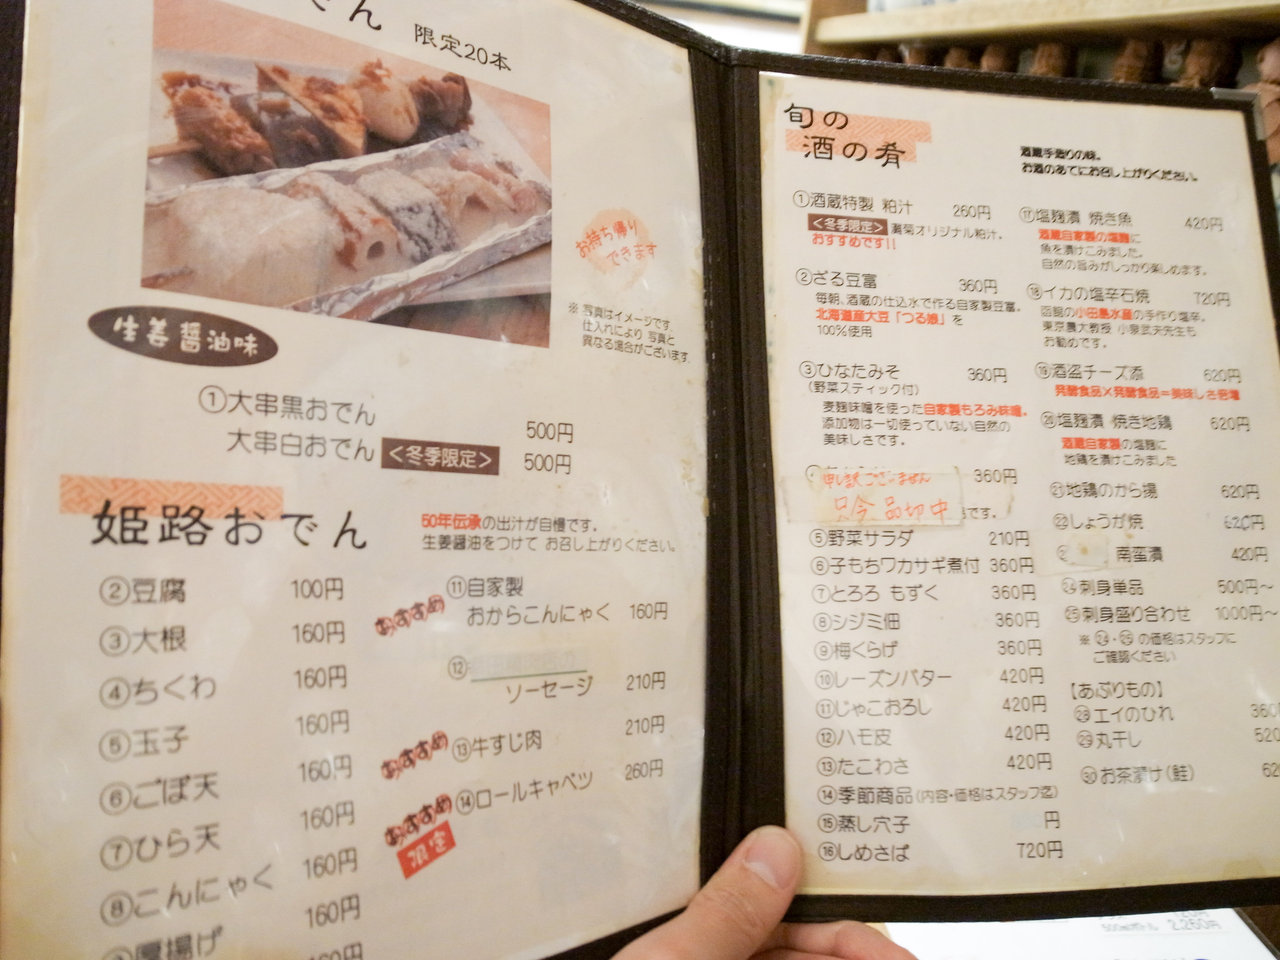 でん 限定20本
お持ち帰り
できます
※写真はイメージです。
仕入れにより 写真と
異なる場合がございます。
生姜醤油味
①大串黒おでん 500円
大串白おでん <冬季限定> 500円
姫路おでん
50年伝承の出汁が自慢です。
生姜醤油をつけて お召し上がりください。
②豆腐 100円
③大根 160円
④ちくわ 160円
⑤玉子 160円
⑥ごぼ天 160円
⑦ひら天 160円
⑧こんにゃく 160円
厚揚げ 160円
160円
おすすめ ⑪自家製
おからこんにゃく 160円
⑫
ソーセージ 210円
おすすめ ⑬牛すじ肉 210円
おすすめ ⑭ロールキャベツ 260円
限定
旬の
酒の肴
酒蔵手造りの味。
お酒のあてにお召し上がりください。
①酒蔵特製 粕汁 260円
<冬季限定> 灘菊オリジナル粕汁。
おすすめです!!
②ざる豆富 360円
毎朝、酒蔵の仕込水で作る自家製豆富。
北海道産大豆「つる娘」を
100%使用
③ひなたみそ 360円
(野菜スティック付)
麦麹味噌を使った自家製もろみ味噌。
添加物は一切使っていない自然の
美味しさです。
360円
申し訳ございません
只今 品切中
です。
⑤野菜サラダ 210円
⑥子もちワカサギ煮付 360円
⑦とろろ もずく 360円
⑧シジミ佃 360円
⑨梅くらげ 360円
⑩レーズンバター 420円
⑪じゃこおろし 420円
⑫ハモ皮 420円
⑬たこわさ 420円
⑭季節商品(内容・価格はスタッフ迄)
⑮蒸し穴子 円
⑯しめさば 720円
⑰塩麹漬 焼き魚 420円
酒蔵自家製の塩麹に
魚を漬けこみました。
自然の旨みがしっかり楽しめます。
⑱イカの塩辛石焼 720円
函館の小田島水産の手作り塩辛。
東京農大教授 小泉武夫先生も
お勧めです。
⑲酒盗チーズ添 620円
発酵食品×発酵食品=美味しさ倍増
⑳塩麹漬 焼き地鶏 620円
酒蔵自家製の塩麹に
地鶏を漬けこみました
㉑地鶏のから揚 620円
㉒しょうが焼 620円
南蛮漬 420円
㉔刺身単品 500円~
㉕刺身盛り合わせ 1000円~
※㉔・㉕の価格はスタッフに
ご確認ください
【あぶりもの】
㉘エイのひれ 360
㉙丸干し 520
㉚お茶漬け(鮭) 620
2,260円